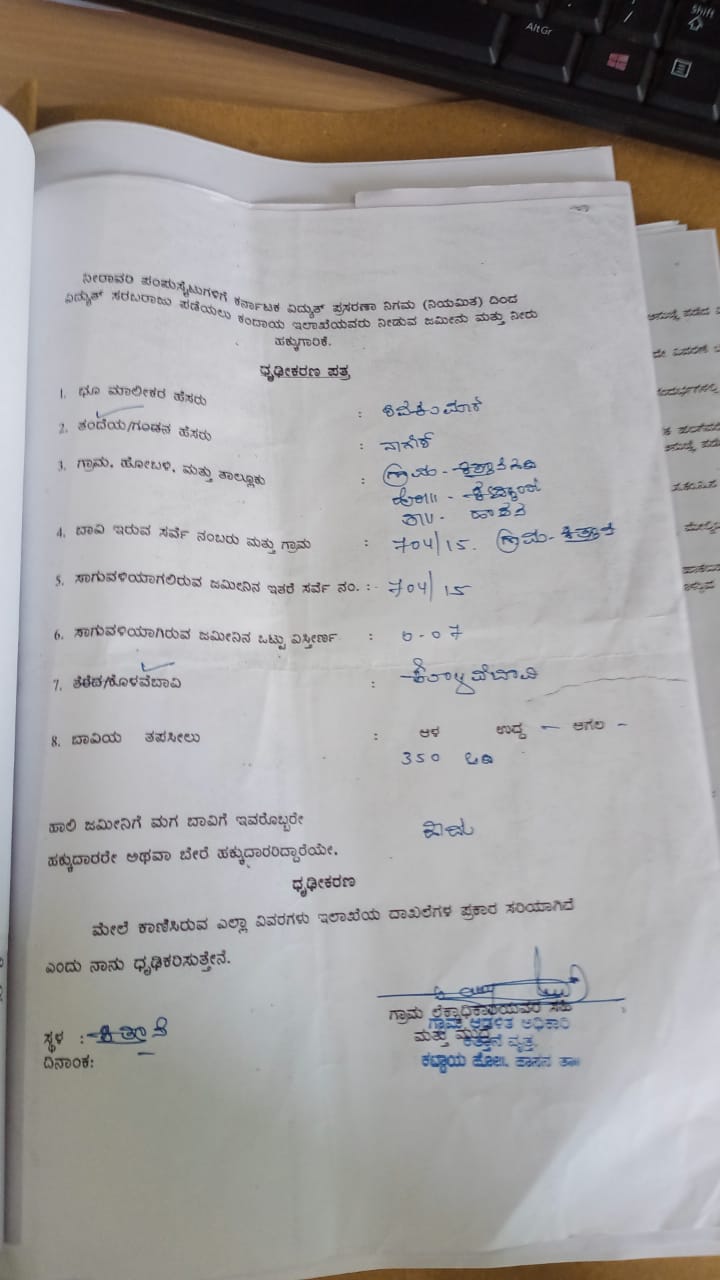 AltGr
Shift
ನೀರಾವರಿ ಪಂಪುಸೆಟ್ಟುಗಳಿಗೆ ಕರ್ನಾಟಕ ವಿದ್ಯುತ್ ಪ್ರಸರಣಾ ನಿಗಮ (ನಿಯಮಿತ) ದಿಂದ
ವಿದ್ಯುತ್ ಸರಬರಾಜು ಪಡೆಯಲು ಕಂದಾಯ ಇಲಾಖೆಯವರು ನೀಡುವ ಜಮೀನು ಮತ್ತು ನೀರು
ಹಕ್ಕುಗಾರಿಕೆ.
ಧೃಢೀಕರಣ ಪತ್ರ
1. ಭೂ ಮಾಲೀಕರ ಹೆಸರು : ಶಿವಕುಮಾರ
2. ತಂದೆಯ/ಗಂಡನ ಹೆಸರು : ನಾಗೇಶ್
3. ಗ್ರಾಮ, ಹೋಬಳಿ, ಮತ್ತು ತಾಲ್ಲೂಕು : ಗ್ರಾಮ -
ತಾ॥ - ಹಾಸನ
4. ಬಾವಿ ಇರುವ ಸರ್ವೆ ನಂಬರು ಮತ್ತು ಗ್ರಾಮ : 704/15. ಗ್ರಾಮ - ಕಿತ್ತಾನೆ
5. ಸಾಗುವಳಿಯಾಗಲಿರುವ ಜಮೀನಿನ ಇತರೆ ಸರ್ವೆ ನಂ. :- 704/15
6. ಸಾಗುವಳಿಯಾಗಿರುವ ಜಮೀನಿನ ಒಟ್ಟು ವಿಸ್ತೀರ್ಣ : 0-07
7. ತೆರೆದ/ಕೊಳವೆಬಾವಿ : ಕೊಳವೆಬಾವಿ
8. ಬಾವಿಯ ತಪಸೀಲು : ಆಳ ಉದ್ದ – ಅಗಲ –
350 ಅಡಿ
ಹಾಲಿ ಜಮೀನಿಗೆ ಮಗ ಬಾವಿಗೆ ಇವರೊಬ್ಬರೇ
ಹಕ್ಕುದಾರರೇ ಅಥವಾ ಬೇರೆ ಹಕ್ಕುದಾರರಿದ್ದಾರೆಯೇ.
ಧೃಢೀಕರಣ
ಮೇಲೆ ಕಾಣಿಸಿರುವ ಎಲ್ಲಾ ವಿವರಗಳು ಇಲಾಖೆಯ ದಾಖಲೆಗಳ ಪ್ರಕಾರ ಸರಿಯಾಗಿದೆ
ಎಂದು ನಾನು ಧೃಢಿಕರಿಸುತ್ತೇನೆ.
ಗ್ರಾಮ ಲೆಕ್ಕಾಧಿಕಾರಿಯವರ ಸಹಿ
ಗ್ರಾಮ ಆಡಳಿತ ಅಧಿಕಾರಿ
ಮತ್ತು ಮುದ್ರೆ
ಕಿತ್ತಾನೆ ವೃತ್ತ,
ಕಟ್ಟಾಯ ಹೋಬಿ, ಹಾಸನ ತಾ॥
ಸ್ಥಳ : ಕಿತ್ತಾನೆ
ದಿನಾಂಕ: